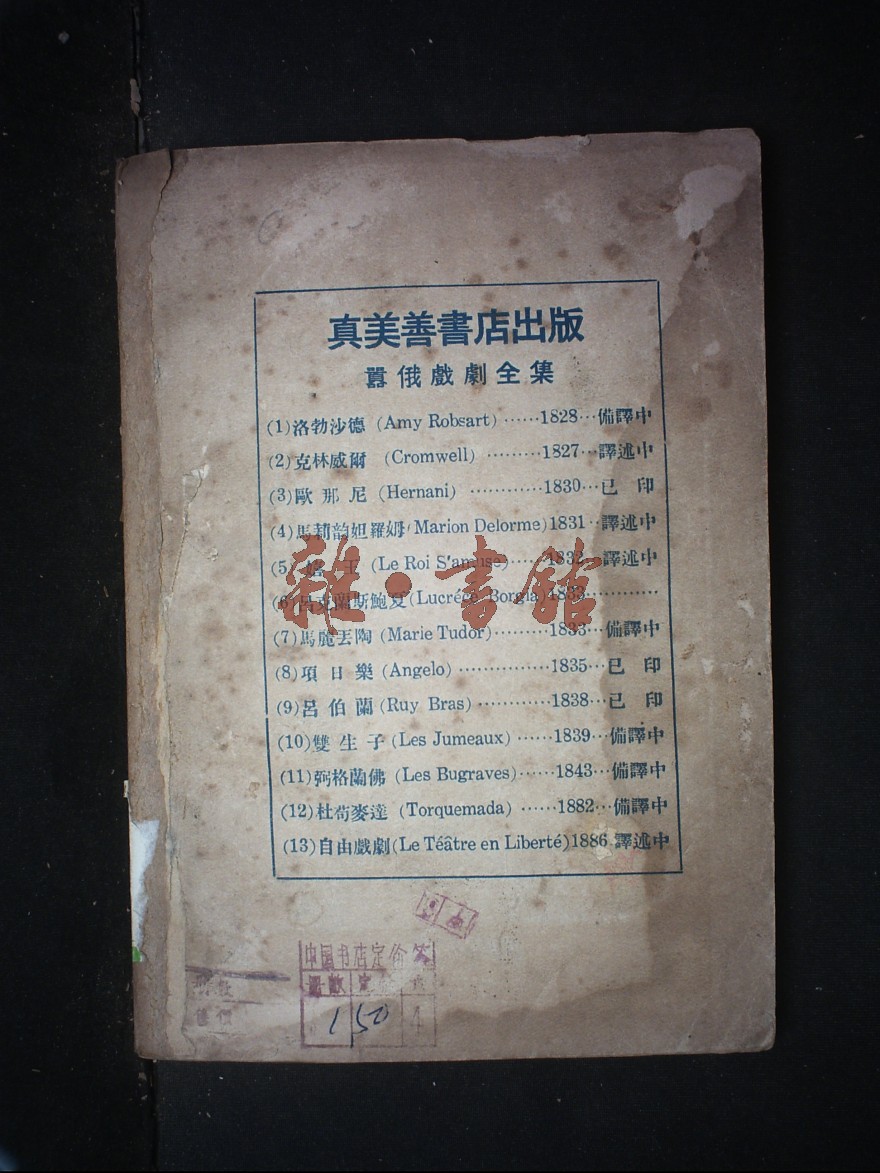 真美善書店出版
囂俄戲劇全集
(1)洛勃沙德 (Amy Robsart) ······1828···備譯中
(2)克林威爾 (Cromwell) ·········1827···譯述中
(3)歐那尼 (Hernani) ············1830···已印
(4)馬莉韵妲羅姆(Marion Delorme)1831··譯述中
(5) 王 (Le Roi S'amuse)······1832··譯述中
(6)呂克蘭斯鮑夏(Lucréce Borgia)1833············
(7)馬麗丟陶 (Marie Tudor)·········1833···備譯中
(8)項日樂 (Angelo) ···············1835···已印
(9)呂伯蘭 (Ruy Bras) ············1838···已印
(10)雙生子 (Les Jumeaux) ······1839···備譯中
(11)弼格蘭佛 (Les Bugraves)······1843···備譯中
(12)杜苟麥達 (Torquemada) ······1882···備譯中
(13)自由戲劇(Le Téâtre en Liberté)1886 譯述中
雜·書館
中国书店定价
冊數 定
1 50 4